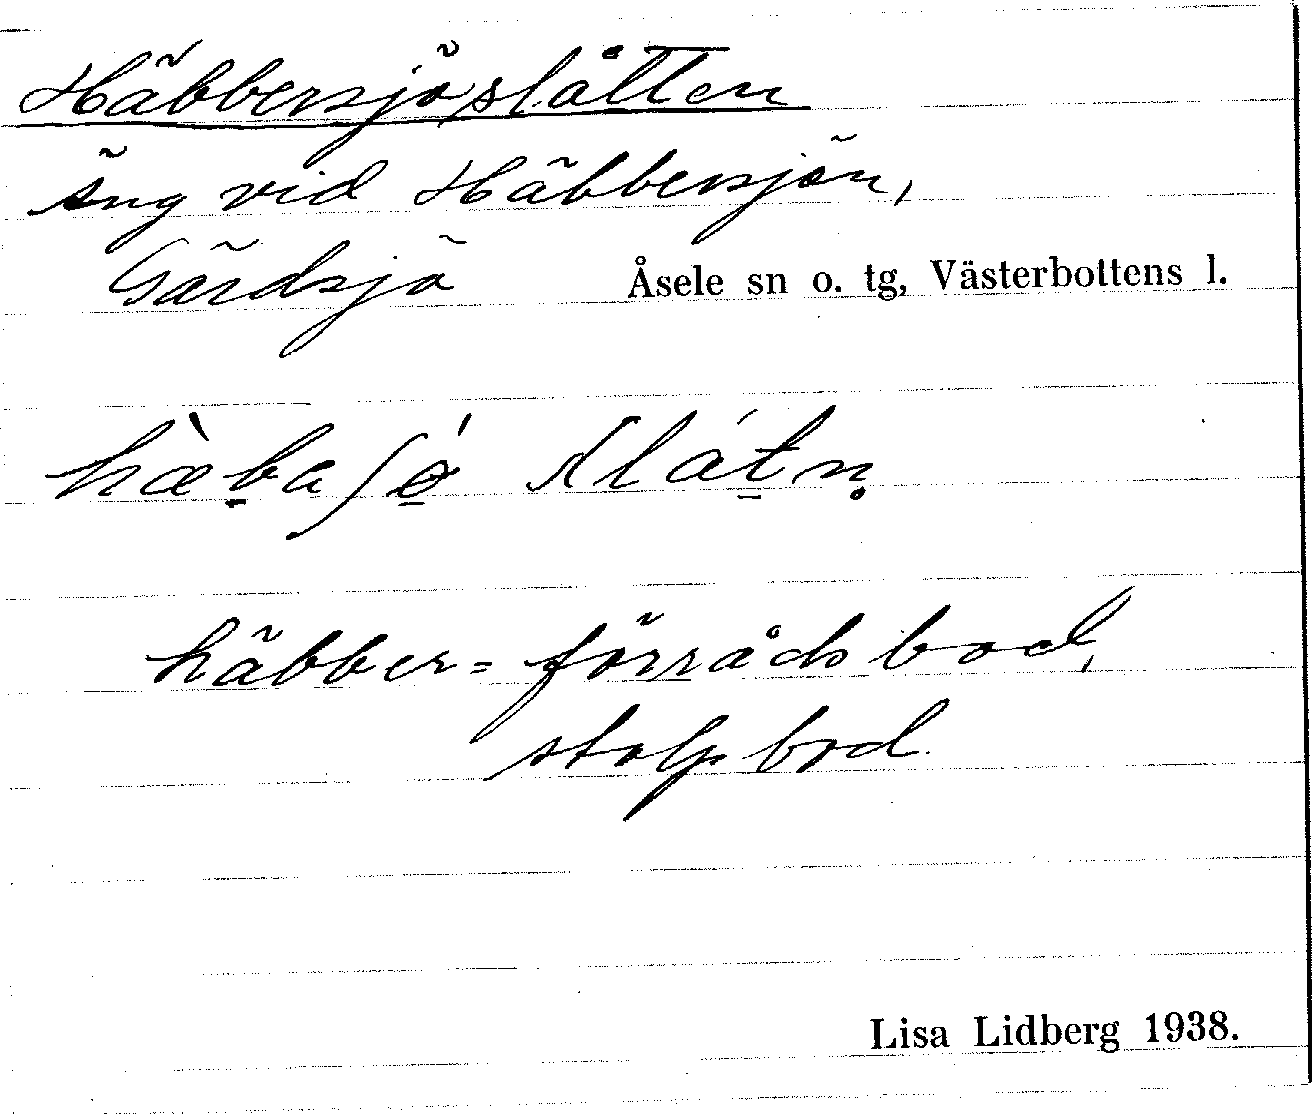 Häbbersjöslåtten
äng vid Häbbersjön,
Gärdsjö Åsele sn o. tg, Västerbottens l.
hæ̀baʃǿ slátn̥
häbber = förrådsbod,
stolpbod.
Lisa Lidberg 1938.